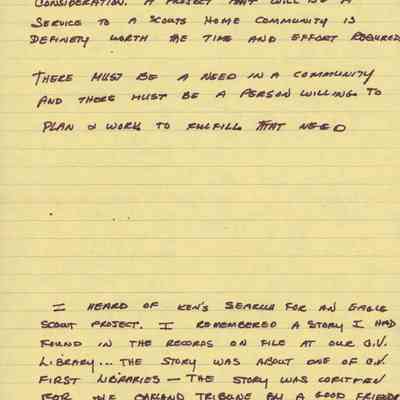 CONSIDERATION. A PROJECT THAT WILL BE A
SERVICE TO A SCOUTS HOME COMMUNITY IS
DEFINETY WORTH THE TIME AND EFFORT REQUIRED
THERE MUST BE A NEED IN A COMMUNITY
AND THERE MUST BE A PERSON WILLING TO
PLAN & WORK TO FULFILL THAT NEED
I HEARD OF KEN'S SEARCH FOR AN EAGLE
SCOUT PROJECT. I REMEMBERED A STORY I HAD
FOUND IN THE RECORDS ON FILE AT OUR C.V.
LIBRARY... THE STORY WAS ABOUT ONE OF C.V.
FIRST LIBRARIES — THE STORY WAS WRITTEN
FOR THE OAKLAND TRIBUNE BY A GOOD FRIEND